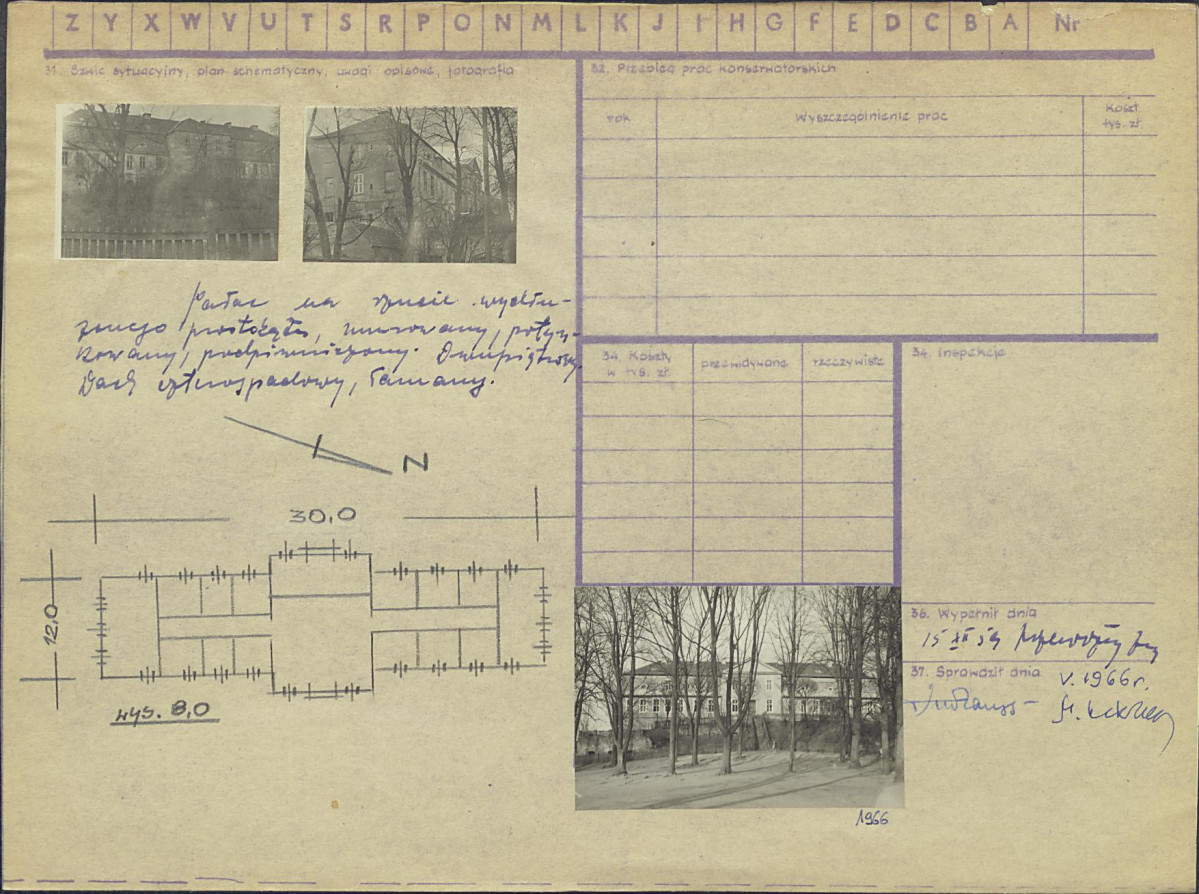 Z Y X W V U T S R P O N M L K J I H G F E D C B A Nr
31. Szkic sytuacyjny, plan schematyczny, uwagi opisowe, fotografia
Pałac na rzucie wydłu-
żonego prostokąta, murowany, potyn-
kowany, podpiwniczony. Dwupiętrowy.
Dach czterospadowy, łamany.
N
30,0
12,0
wys. 8,0
32. Przebieg prac konserwatorskich
rok
Wyszczególnienie prac
Koszt
tys. zł.
34. Koszty
w tys. zł.
przewidywane
rzeczywiste
34. Inspekcje
1966
36. Wypełnił dnia
15 XI 59
37. Sprawdził dnia
V. 1966 r.